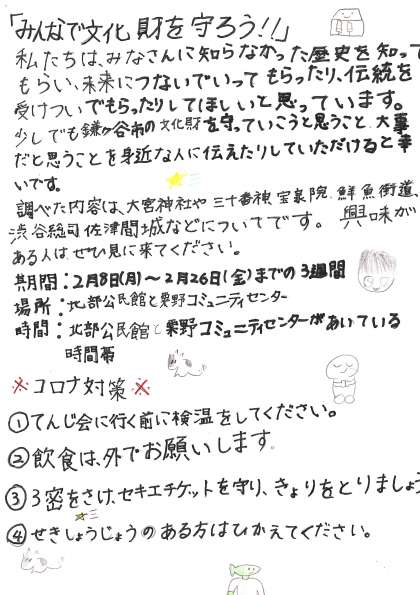 「みんなで文化財を守ろう！！」
私たちは、みなさんに知らなかった歴史を知って
もらい、未来につないでいってもらったり、伝統を
受けついでもらったりしてほしいと思っています。
少しでも鎌ケ谷市の文化財を守っていこうと思うこと、大事
だと思うことを身近な人に伝えたりしていただけると幸
いです。
調べた内容は、大宮神社や三十番神、宝泉院、鮮魚街道、
渋谷総司、佐津間城などについてです。興味が
ある人はぜひ見に来てください。
期間：2月8日(月)～2月26日(金)までの3週間
場所：北部公民館と粟野コミュニティセンター
時間：北部公民館と粟野コミュニティセンターがあいている
時間帯
※コロナ対策※
①てんじ会に行く前に検温をしてください。
②飲食は、外でお願いします。
③3密をさけ、セキエチケットを守り、きょりをとりましょう
④せきしょうじょうのある方はひかえてください。